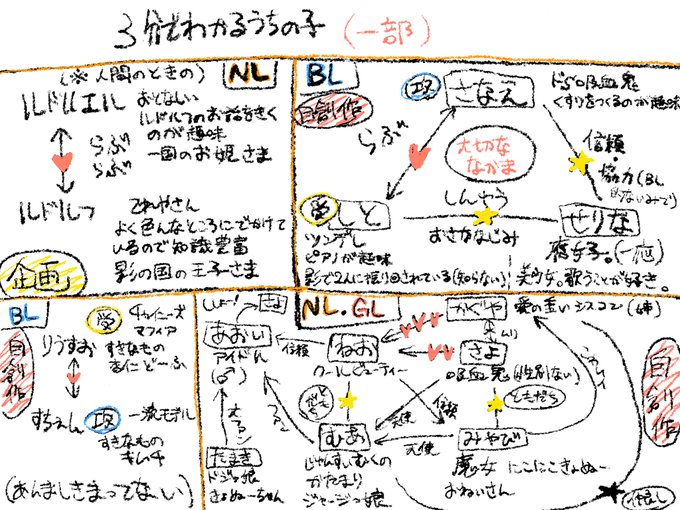 3分でわかるうちの子 (一部)
(※人間のときの) NL
ルドルエル おとなしい
ルドルフのお話をきく
のが趣味
一国のお姫さま
らぶ
らぶ
ルドルフ てれやさん
よく色んなところにでかけて
いるので知識豊富
影の国の王子さま
企画
BL
自創作
攻 さなえ ドS吸血鬼
くすりをつくるのが趣味
らぶ
大切な
なかま
信頼・
協力(BL
的ないみで)
受 しと
しんゆう
おさななじみ
せりな
ツンデレ
ピアノが趣味
影で2人に振り回されている(知らない)
腐女子。(一応)
美少女。歌うことが好き。
BL
自創作
受 チャイニーズ
マフィア
りうすお
すきなもの
すちえん 攻 一流モデル
すきなもの
キムチ
(あんましきまってなーい)
NL.GL
自創作
きよ
あおい
アイドル
(♂)
信頼
ねお
クールビューティー
かぐや
さよ
吸血鬼(性別ない)
愛の重いシスコン(姉)
天使
信頼
ともだち
むあ
天使
みやび
じゃんすいむくの
かたまり
ジャージっ娘
魔女 にこにこきょぬー
おねいさん
たまき
ドジっ娘
きょぬーちゃん
仲良し